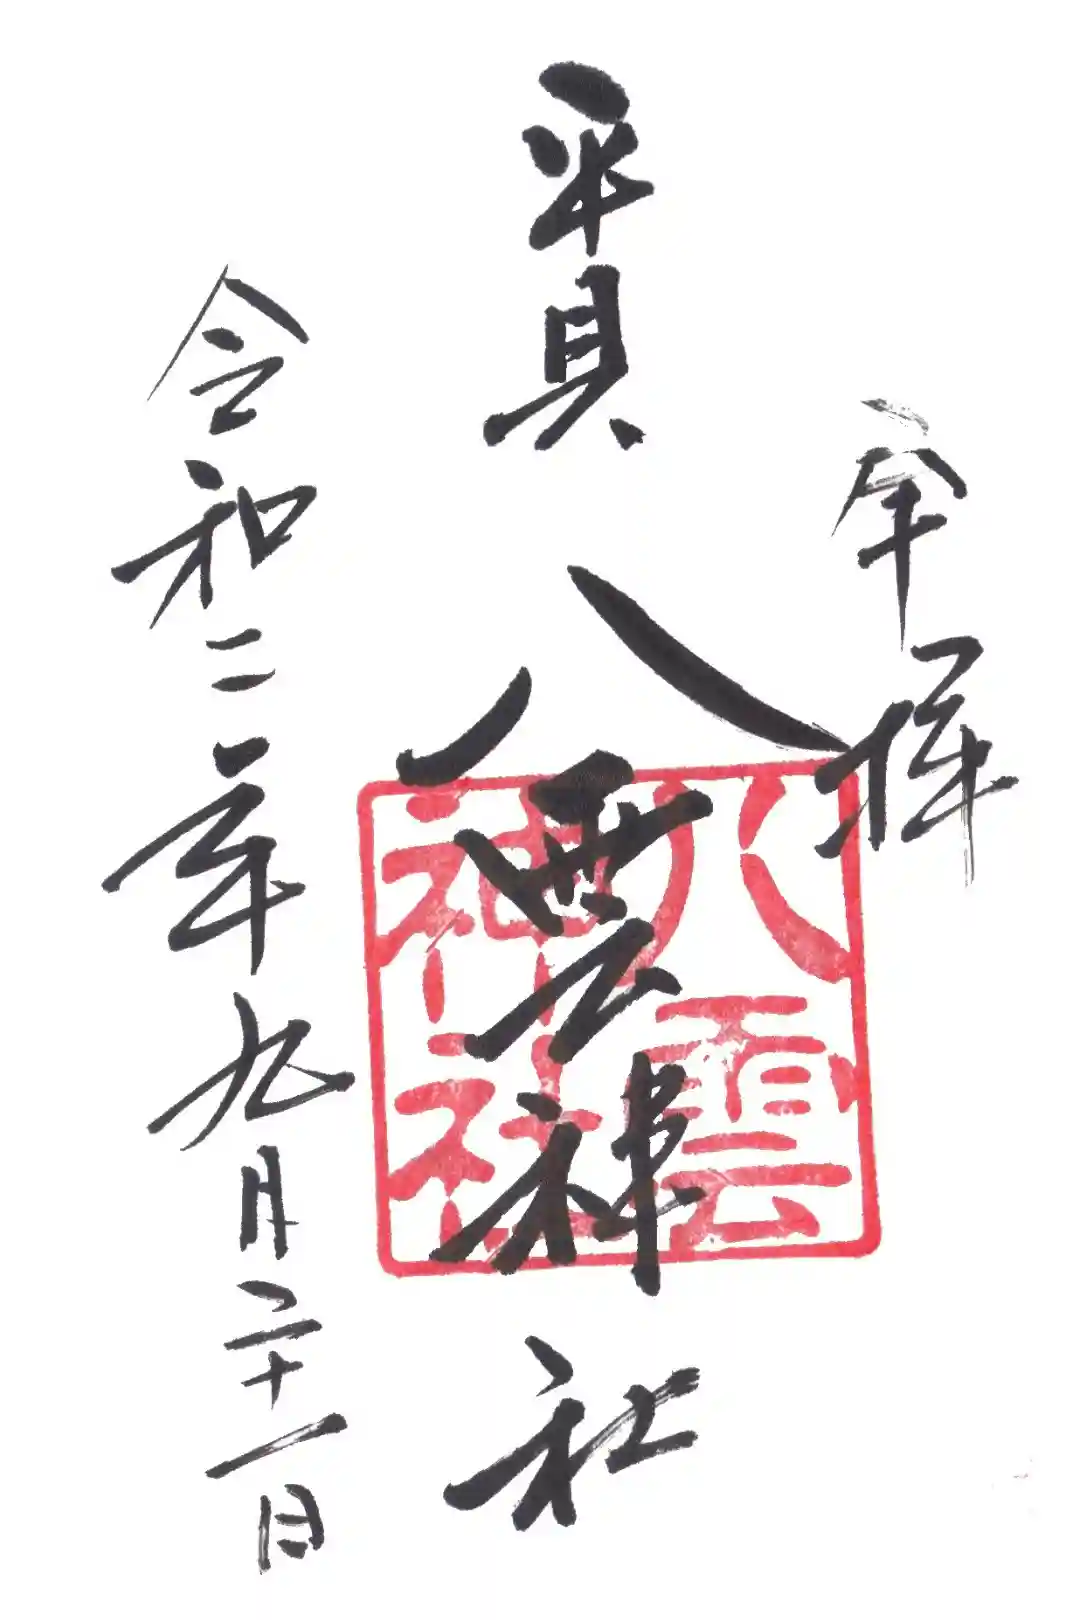 奉拝
平貝 八雲神社
八雲
神社
令和二年九月二十一日